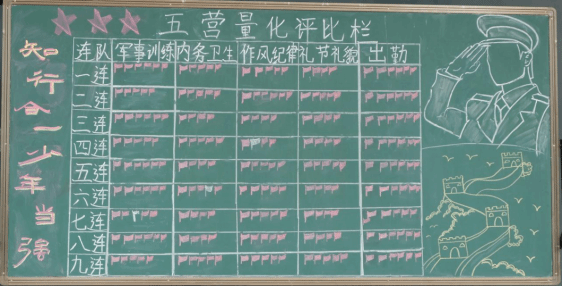 五营量化评比栏
知行合一少年当强
连队 军事训练 内务卫生 作风纪律 礼节礼貌 出勤
一连
二连
三连
四连
五连
六连
七连
八连
九连